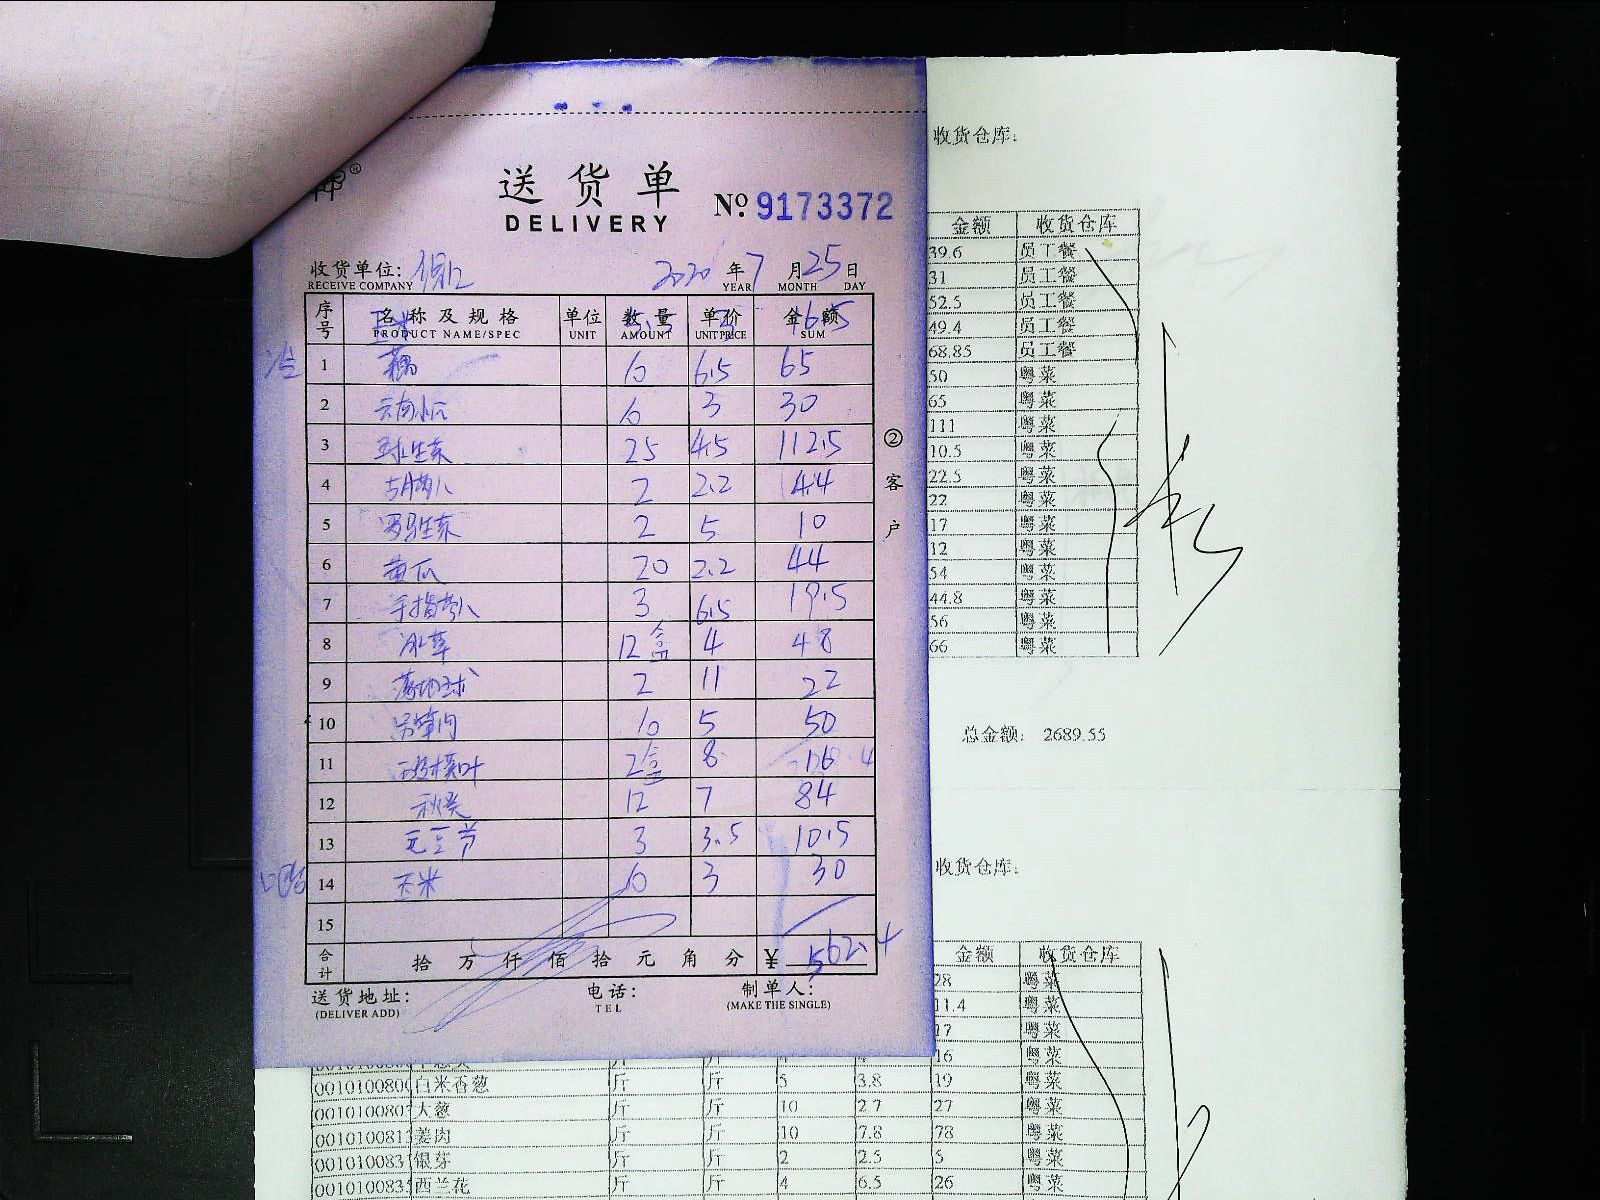 送货单
DELIVERY
No. 9173372
收货单位:
RECEIVE COMPANY
2020 年 7 月 25 日
YEAR MONTH DAY
序号 名称及规格 单位 数量 单价 金额
PRODUCT NAME/SPEC UNIT AMOUNT UNIT PRICE SUM
1 藕 10 6.5 65
2 云南小瓜 10 3 30
3 球生菜 25 4.5 112.5
4 2 2.2 4.4
5 罗马生菜 2 5 10
6 黄瓜 20 2.2 44
7 手指萝卜 3 6.5 19.5
8 冰草 12盒 4 48
9 2 11 22
10 10 5 50
11 2盒 8 16
12 秋葵 12 7 84
13 3 3.5 10.5
14 玉米 10 3 30
15
合计 拾 万 仟 佰 拾 元 角 分 ¥ 562.4
送货地址: 电话: 制单人:
(DELIVER ADD) TEL (MAKE THE SINGLE)
② 客户
收货仓库:
金额 收货仓库
39.6 员工餐
31 员工餐
52.5 员工餐
49.4 员工餐
68.85 员工餐
50 粤菜
65 粤菜
111 粤菜
10.5 粤菜
22.5 粤菜
22 粤菜
17 粤菜
12 粤菜
54 粤菜
44.8 粤菜
56 粤菜
66 粤菜
总金额: 2689.55
收货仓库:
金额 收货仓库
28 粤菜
11.4 粤菜
17 粤菜
16 粤菜
白米香葱 斤 斤 5 3.8 19 粤菜
大葱 斤 斤 10 2.7 27 粤菜
姜肉 斤 斤 10 7.8 78 粤菜
银芽 斤 斤 2 2.5 5 粤菜
西兰花 斤 斤 4 6.5 26 粤菜